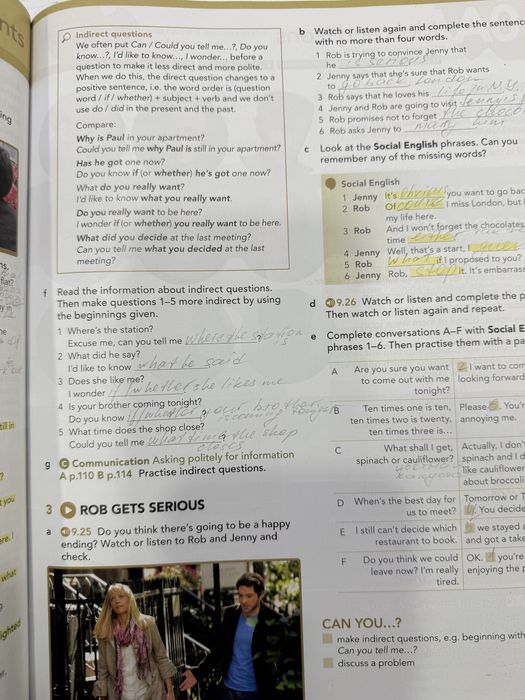 nts
Indirect questions
We often put Can / Could you tell me...?, Do you
know...?, I'd like to know..., I wonder... before a
question to make it less direct and more polite.
When we do this, the direct question changes to a
positive sentence, i.e. the word order is (question
word / if / whether) + subject + verb and we don't
use do / did in the present and the past.
Compare:
Why is Paul in your apartment?
Could you tell me why Paul is still in your apartment?
Has he got one now?
Do you know if (or whether) he's got one now?
What do you really want?
I'd like to know what you really want.
Do you really want to be here?
I wonder if (or whether) you really want to be here.
What did you decide at the last meeting?
Can you tell me what you decided at the last
meeting?
f Read the information about indirect questions.
Then make questions 1–5 more indirect by using
the beginnings given.
1 Where's the station?
Excuse me, can you tell me where the station
2 What did he say?
I'd like to know what he said
3 Does she like me?
I wonder if/whether she likes me
4 Is your brother coming tonight?
Do you know if/whether your brother
is coming tonight
5 What time does the shop close?
Could you tell me what time the shop
closes
g Communication Asking politely for information
A p.110 B p.114 Practise indirect questions.
3 ROB GETS SERIOUS
a 9.25 Do you think there's going to be a happy
ending? Watch or listen to Rob and Jenny and
check.
b Watch or listen again and complete the sentenc
with no more than four words.
1 Rob is trying to convince Jenny that
he is serious
2 Jenny says that she's sure that Rob wants
to go back London
3 Rob says that he loves his life in N.Y.
4 Jenny and Rob are going to visit Jenny's
5 Rob promises not to forget the choc
6 Rob asks Jenny to marry him
c Look at the Social English phrases. Can you
remember any of the missing words?
Social English
1 Jenny It's obvious you want to go bac
2 Rob Of course I miss London, but
my life here.
3 Rob And I won't forget the chocolates
time either
4 Jenny Well, that's a start, I guess
5 Rob What if I proposed to you?
6 Jenny Rob, stop it. It's embarrass
d 9.26 Watch or listen and complete the p
Then watch or listen again and repeat.
e Complete conversations A–F with Social E
phrases 1–6. Then practise them with a pa
A Are you sure you want
to come out with me
tonight?
2 I want to com
looking forward
B Ten times one is ten,
ten times two is twenty,
ten times three is...
Please 6. You'r
annoying me.
C What shall I get,
spinach or cauliflower?
Actually, I don'
spinach and I d
like cauliflower
about broccoli
D When's the best day for
us to meet?
Tomorrow or T
You decide
E I still can't decide which
restaurant to book.
we stayed
and got a take
F Do you think we could
leave now? I'm really
tired.
OK. you're
enjoying the p
CAN YOU...?
make indirect questions, e.g. beginning with
Can you tell me...?
discuss a problem